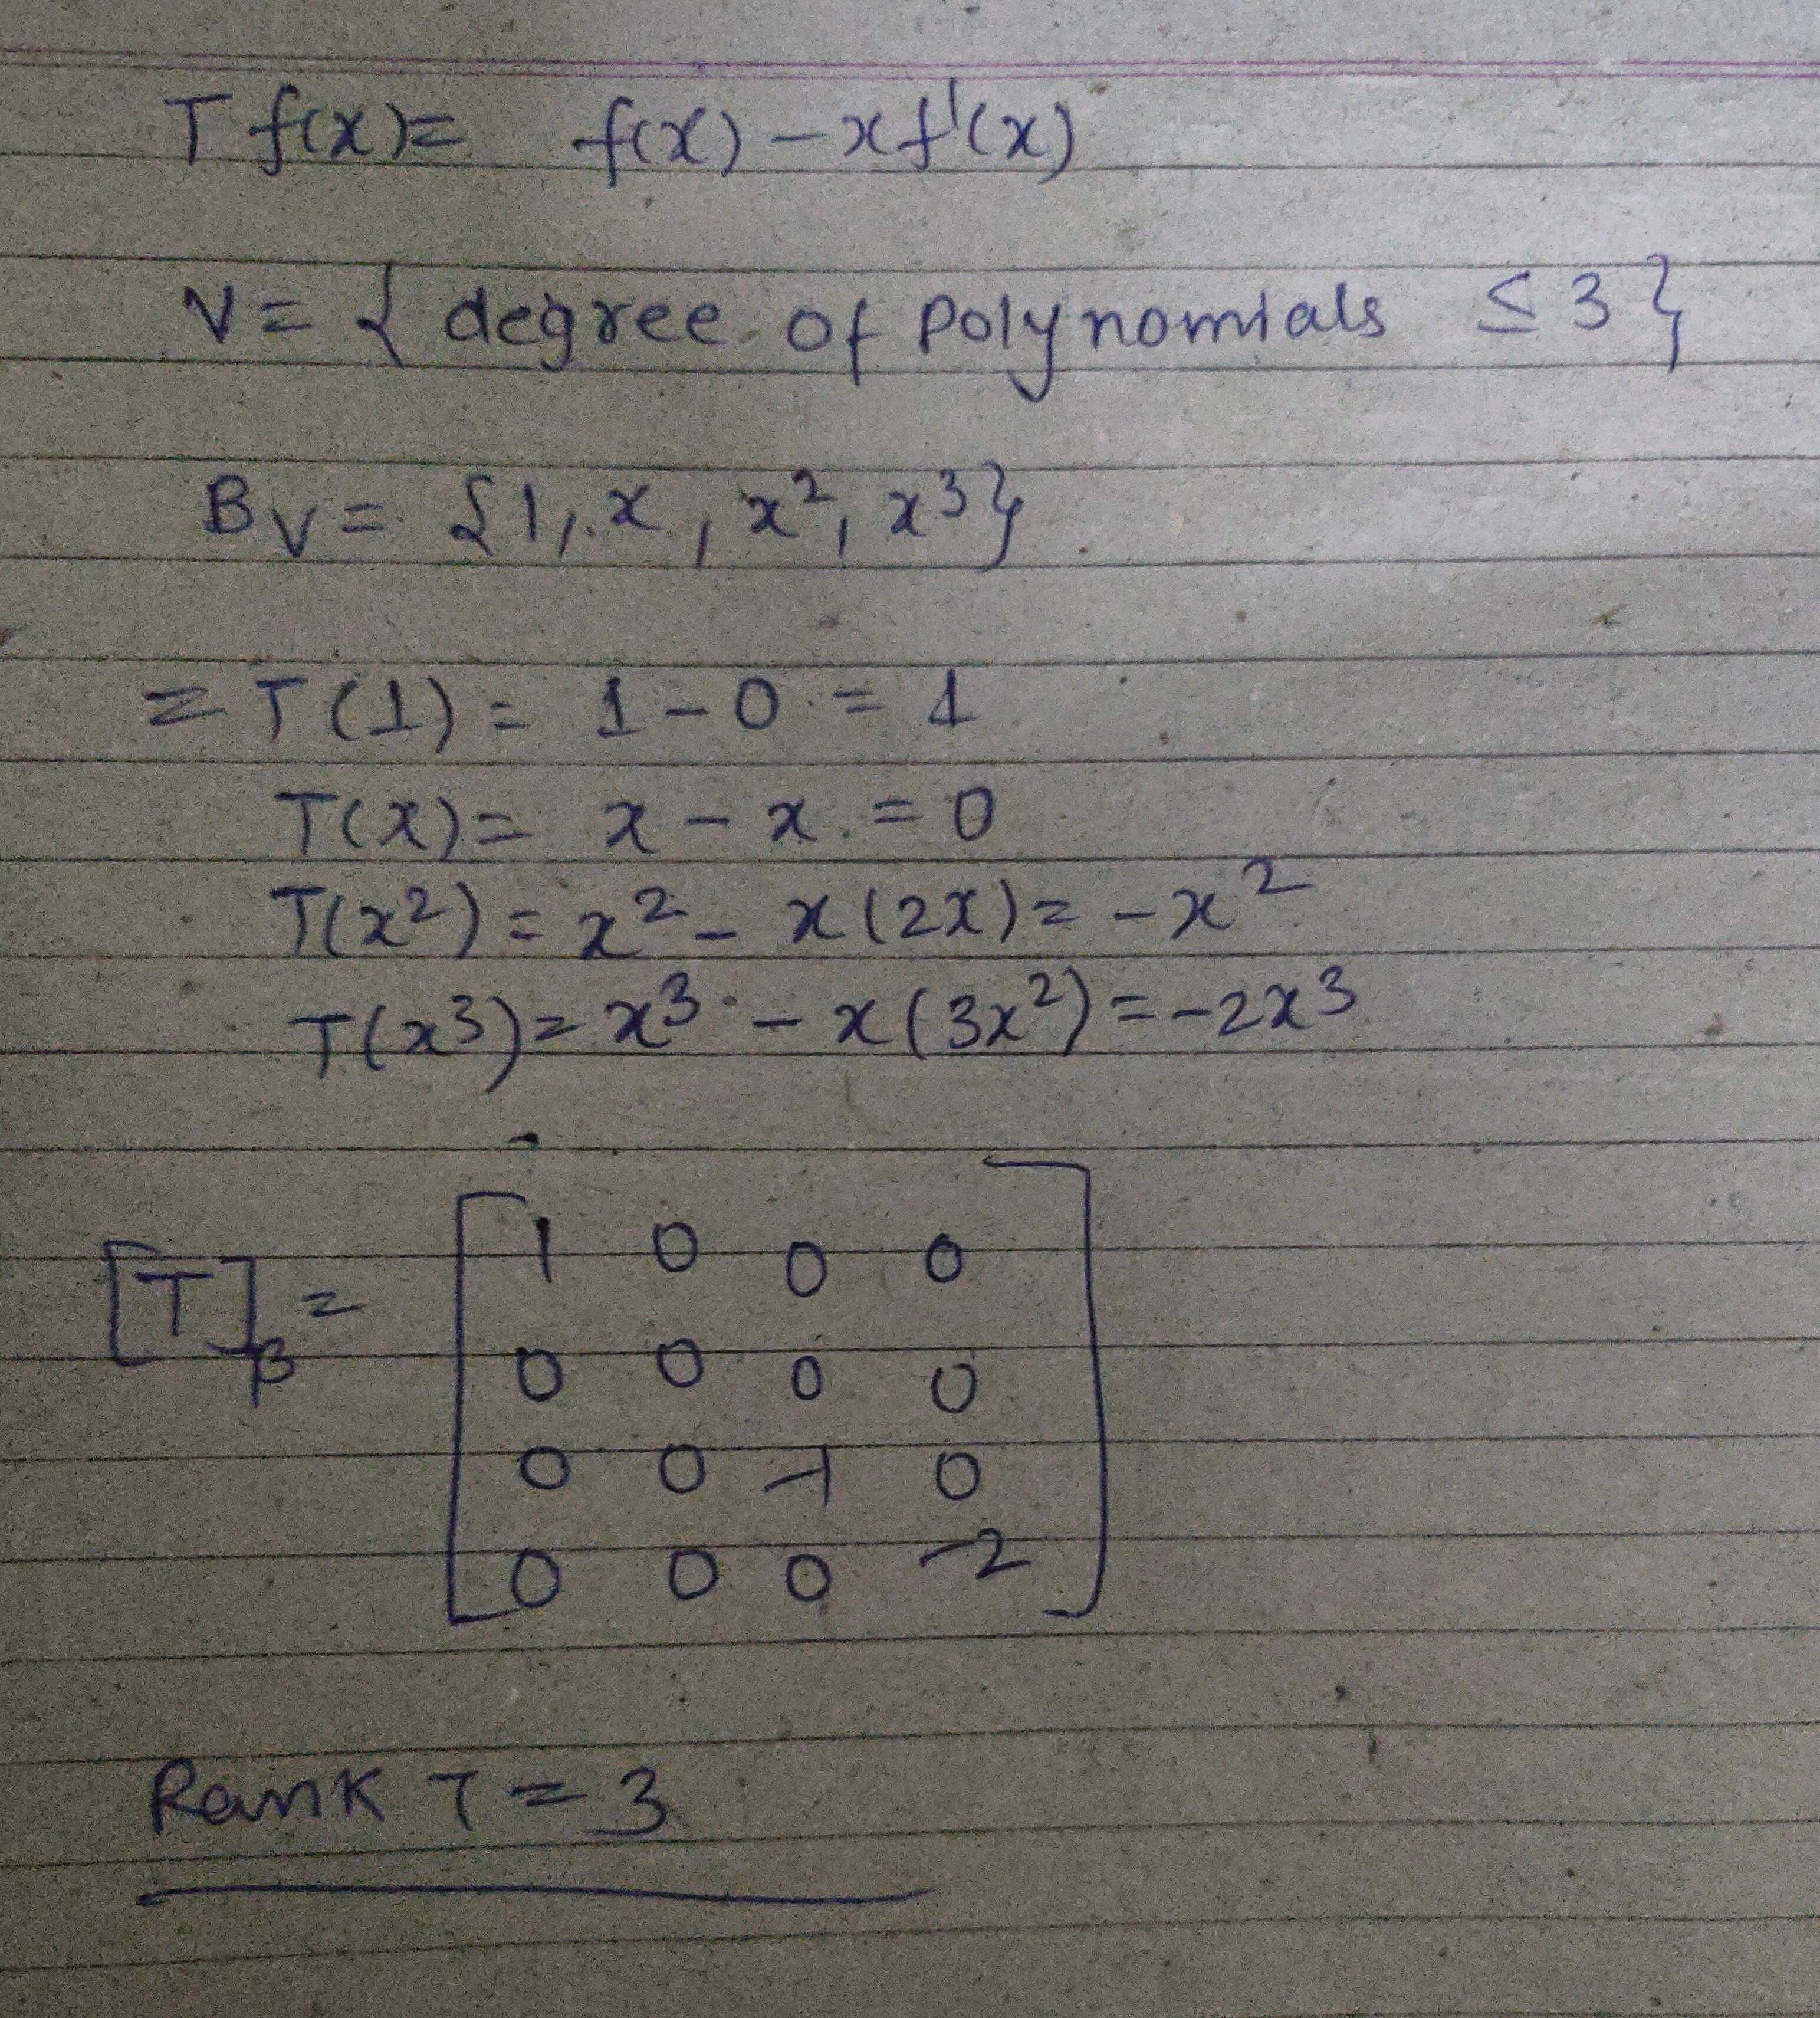 T f(x) = f(x) - xf'(x)
V = { degree of polynomials ≤ 3 }
B_V = {1, x, x², x³}
= T(1) = 1 - 0 = 1
T(x) = x - x = 0
T(x²) = x² - x(2x) = -x²
T(x³) = x³ - x(3x²) = -2x³
[T]_β = [ 1 0 0 0
0 0 0 0
0 0 -1 0
0 0 0 -2 ]
Rank T = 3